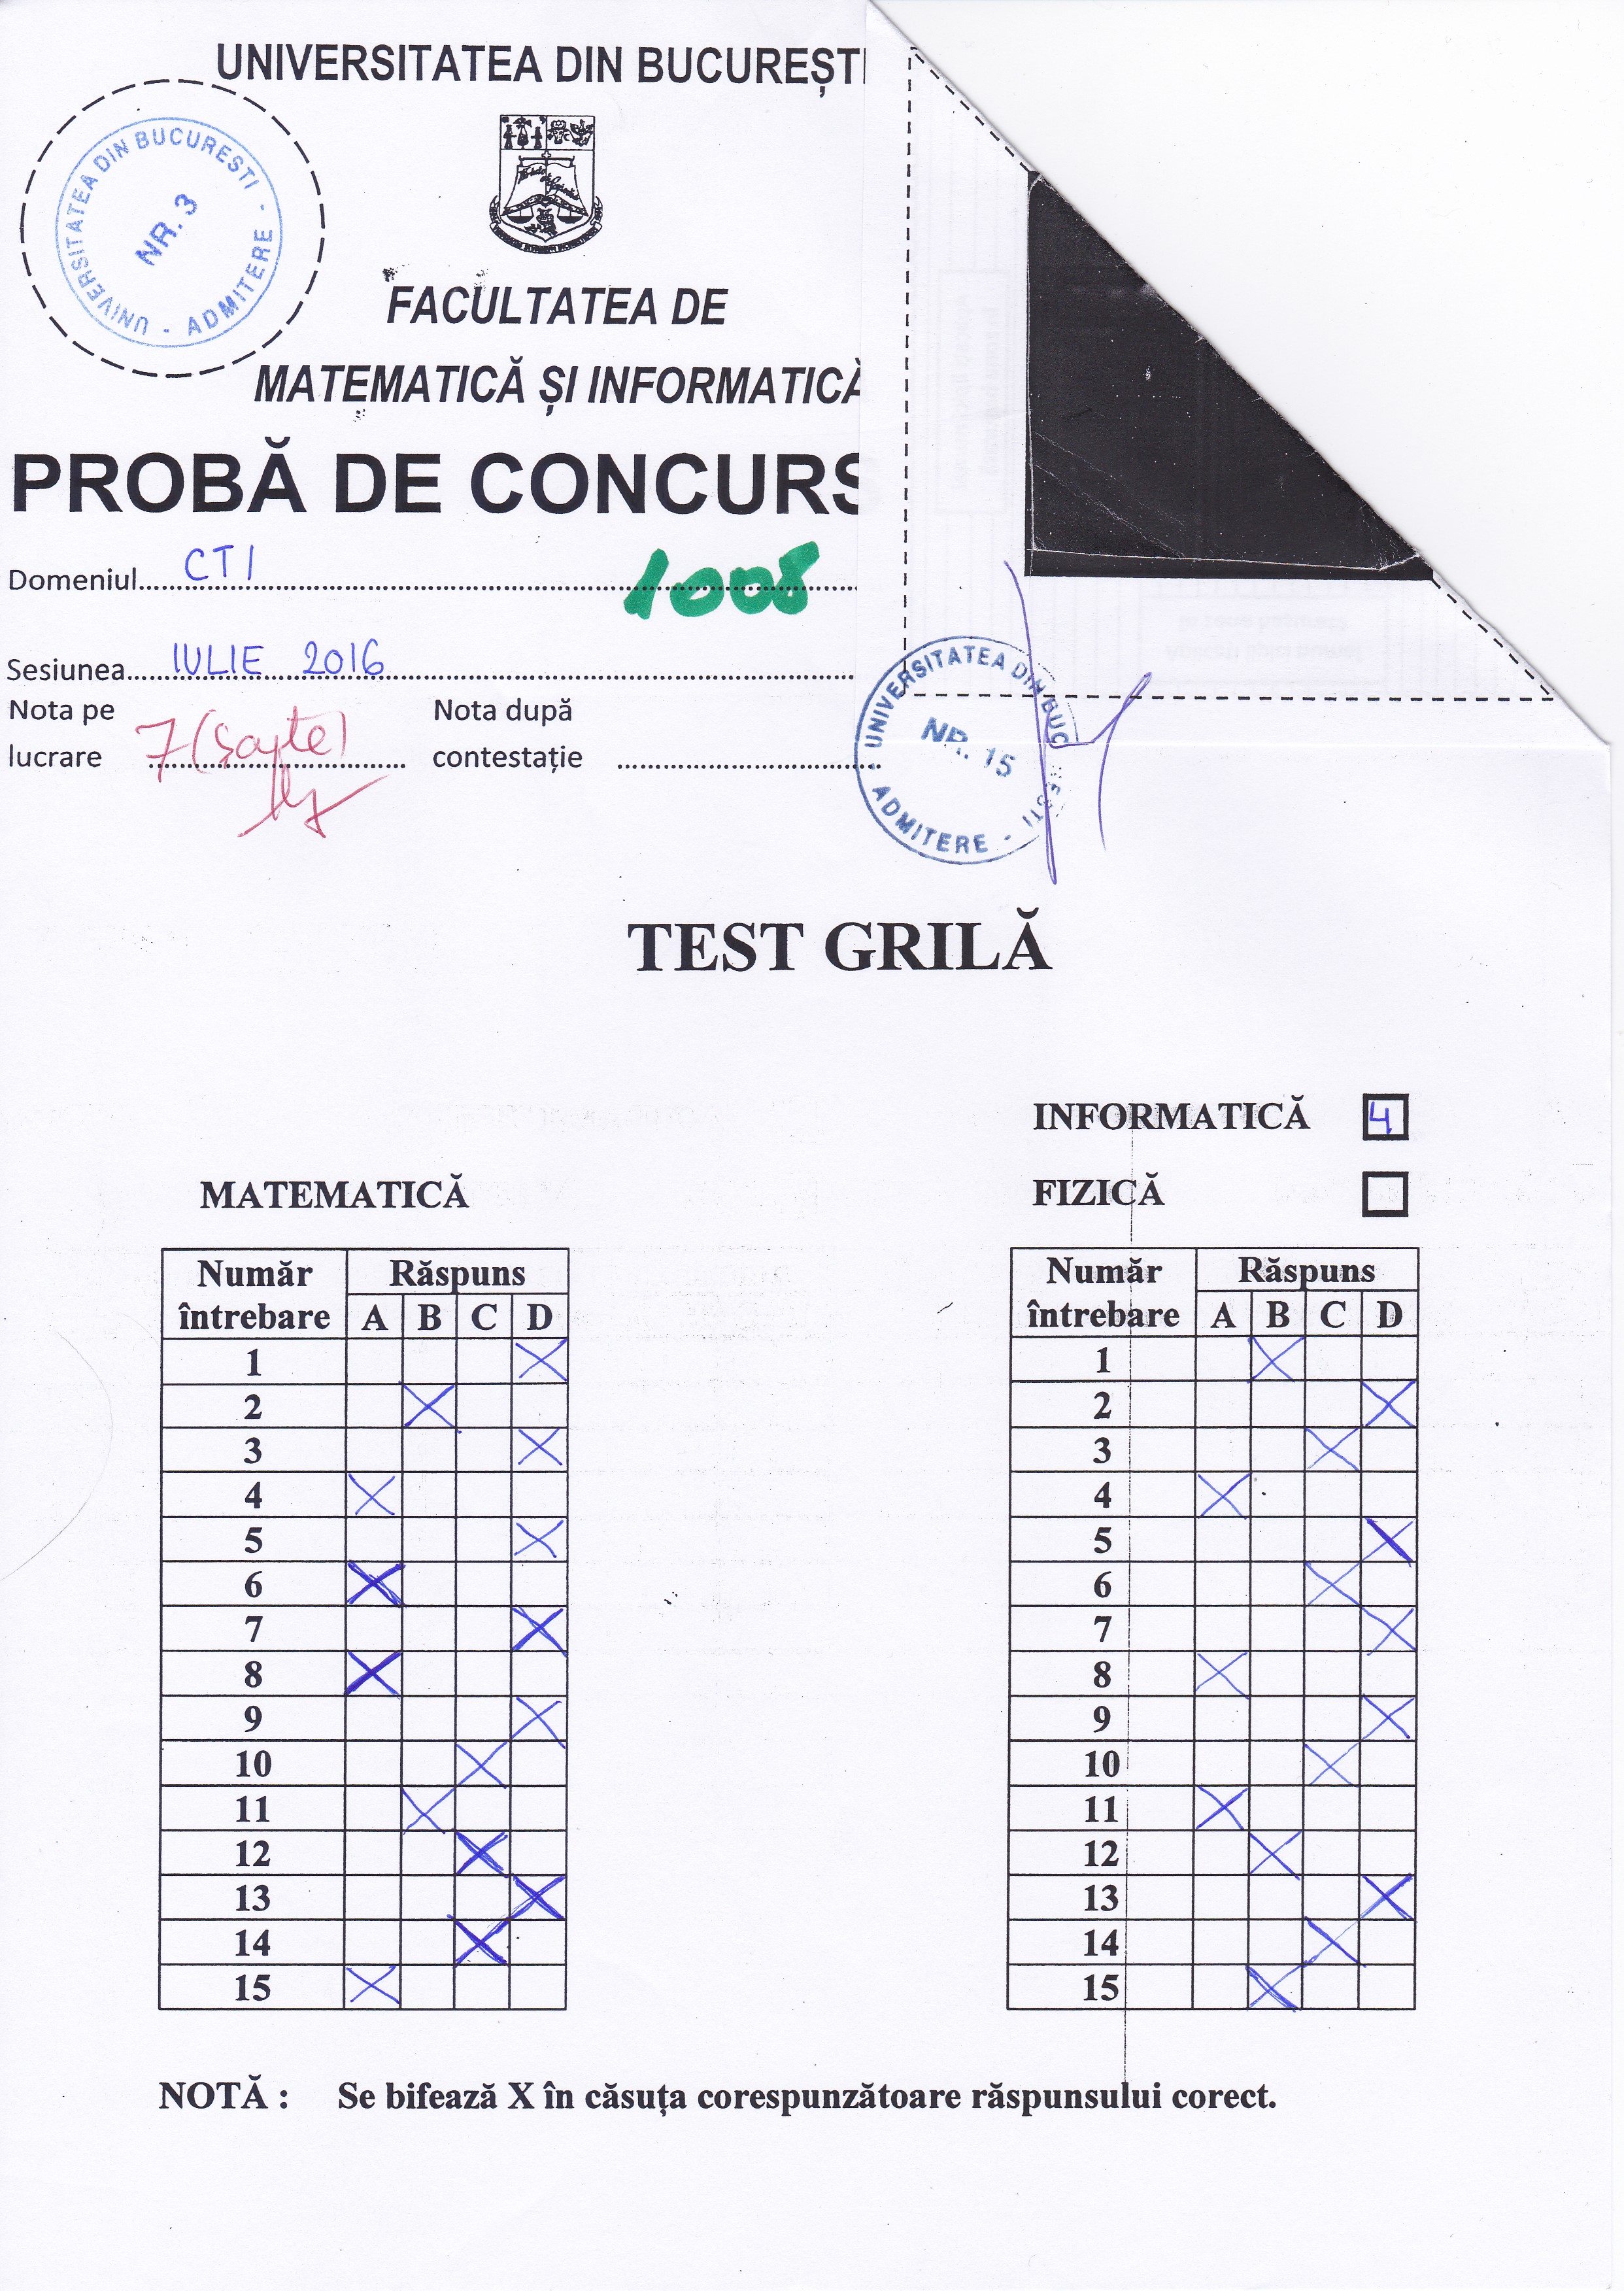 UNIVERSITATEA DIN BUCUREȘTI
UNIVERSITATEA DIN BUCURESTI - ADMITERE -
NR. 3
FACULTATEA DE
MATEMATICĂ ȘI INFORMATICĂ
PROBĂ DE CONCURS
Domeniul CTI 1008
Sesiunea IULIE 2016
Nota pe lucrare 7 (Șapte)
Nota după contestație
UNIVERSITATEA DIN BUCURESTI - ADMITERE -
NR. 15
TEST GRILĂ
INFORMATICĂ 4
FIZICĂ
MATEMATICĂ
Număr întrebare Răspuns
A B C D
1 X
2 X
3 X
4 X
5 X
6 X
7 X
8 X
9 X
10 X
11 X
12 X
13 X
14 X
15 X
Număr întrebare Răspuns
A B C D
1 X
2 X
3 X
4 X
5 X
6 X
7 X
8 X
9 X
10 X
11 X
12 X
13 X
14 X
15 X
NOTĂ : Se bifează X în căsuța corespunzătoare răspunsului corect.